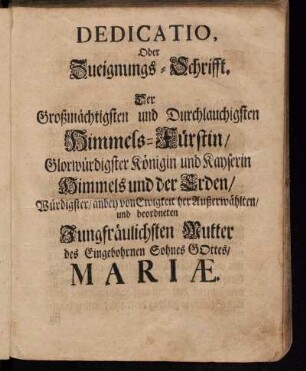 DEDICATIO,
Oder
Zueignungs-Schrifft.
Der
Großmächtigsten und Durchlauchigsten
Himmels-Fürstin/
Glorwürdigster Königin und Kayserin
Himmels und der Erden/
Würdigster/ anbey von Ewigkeit her Außerwählten/
und beordneten
Jungfräulichsten Mutter
des Eingebohrnen Sohnes GOttes/
MARIÆ.